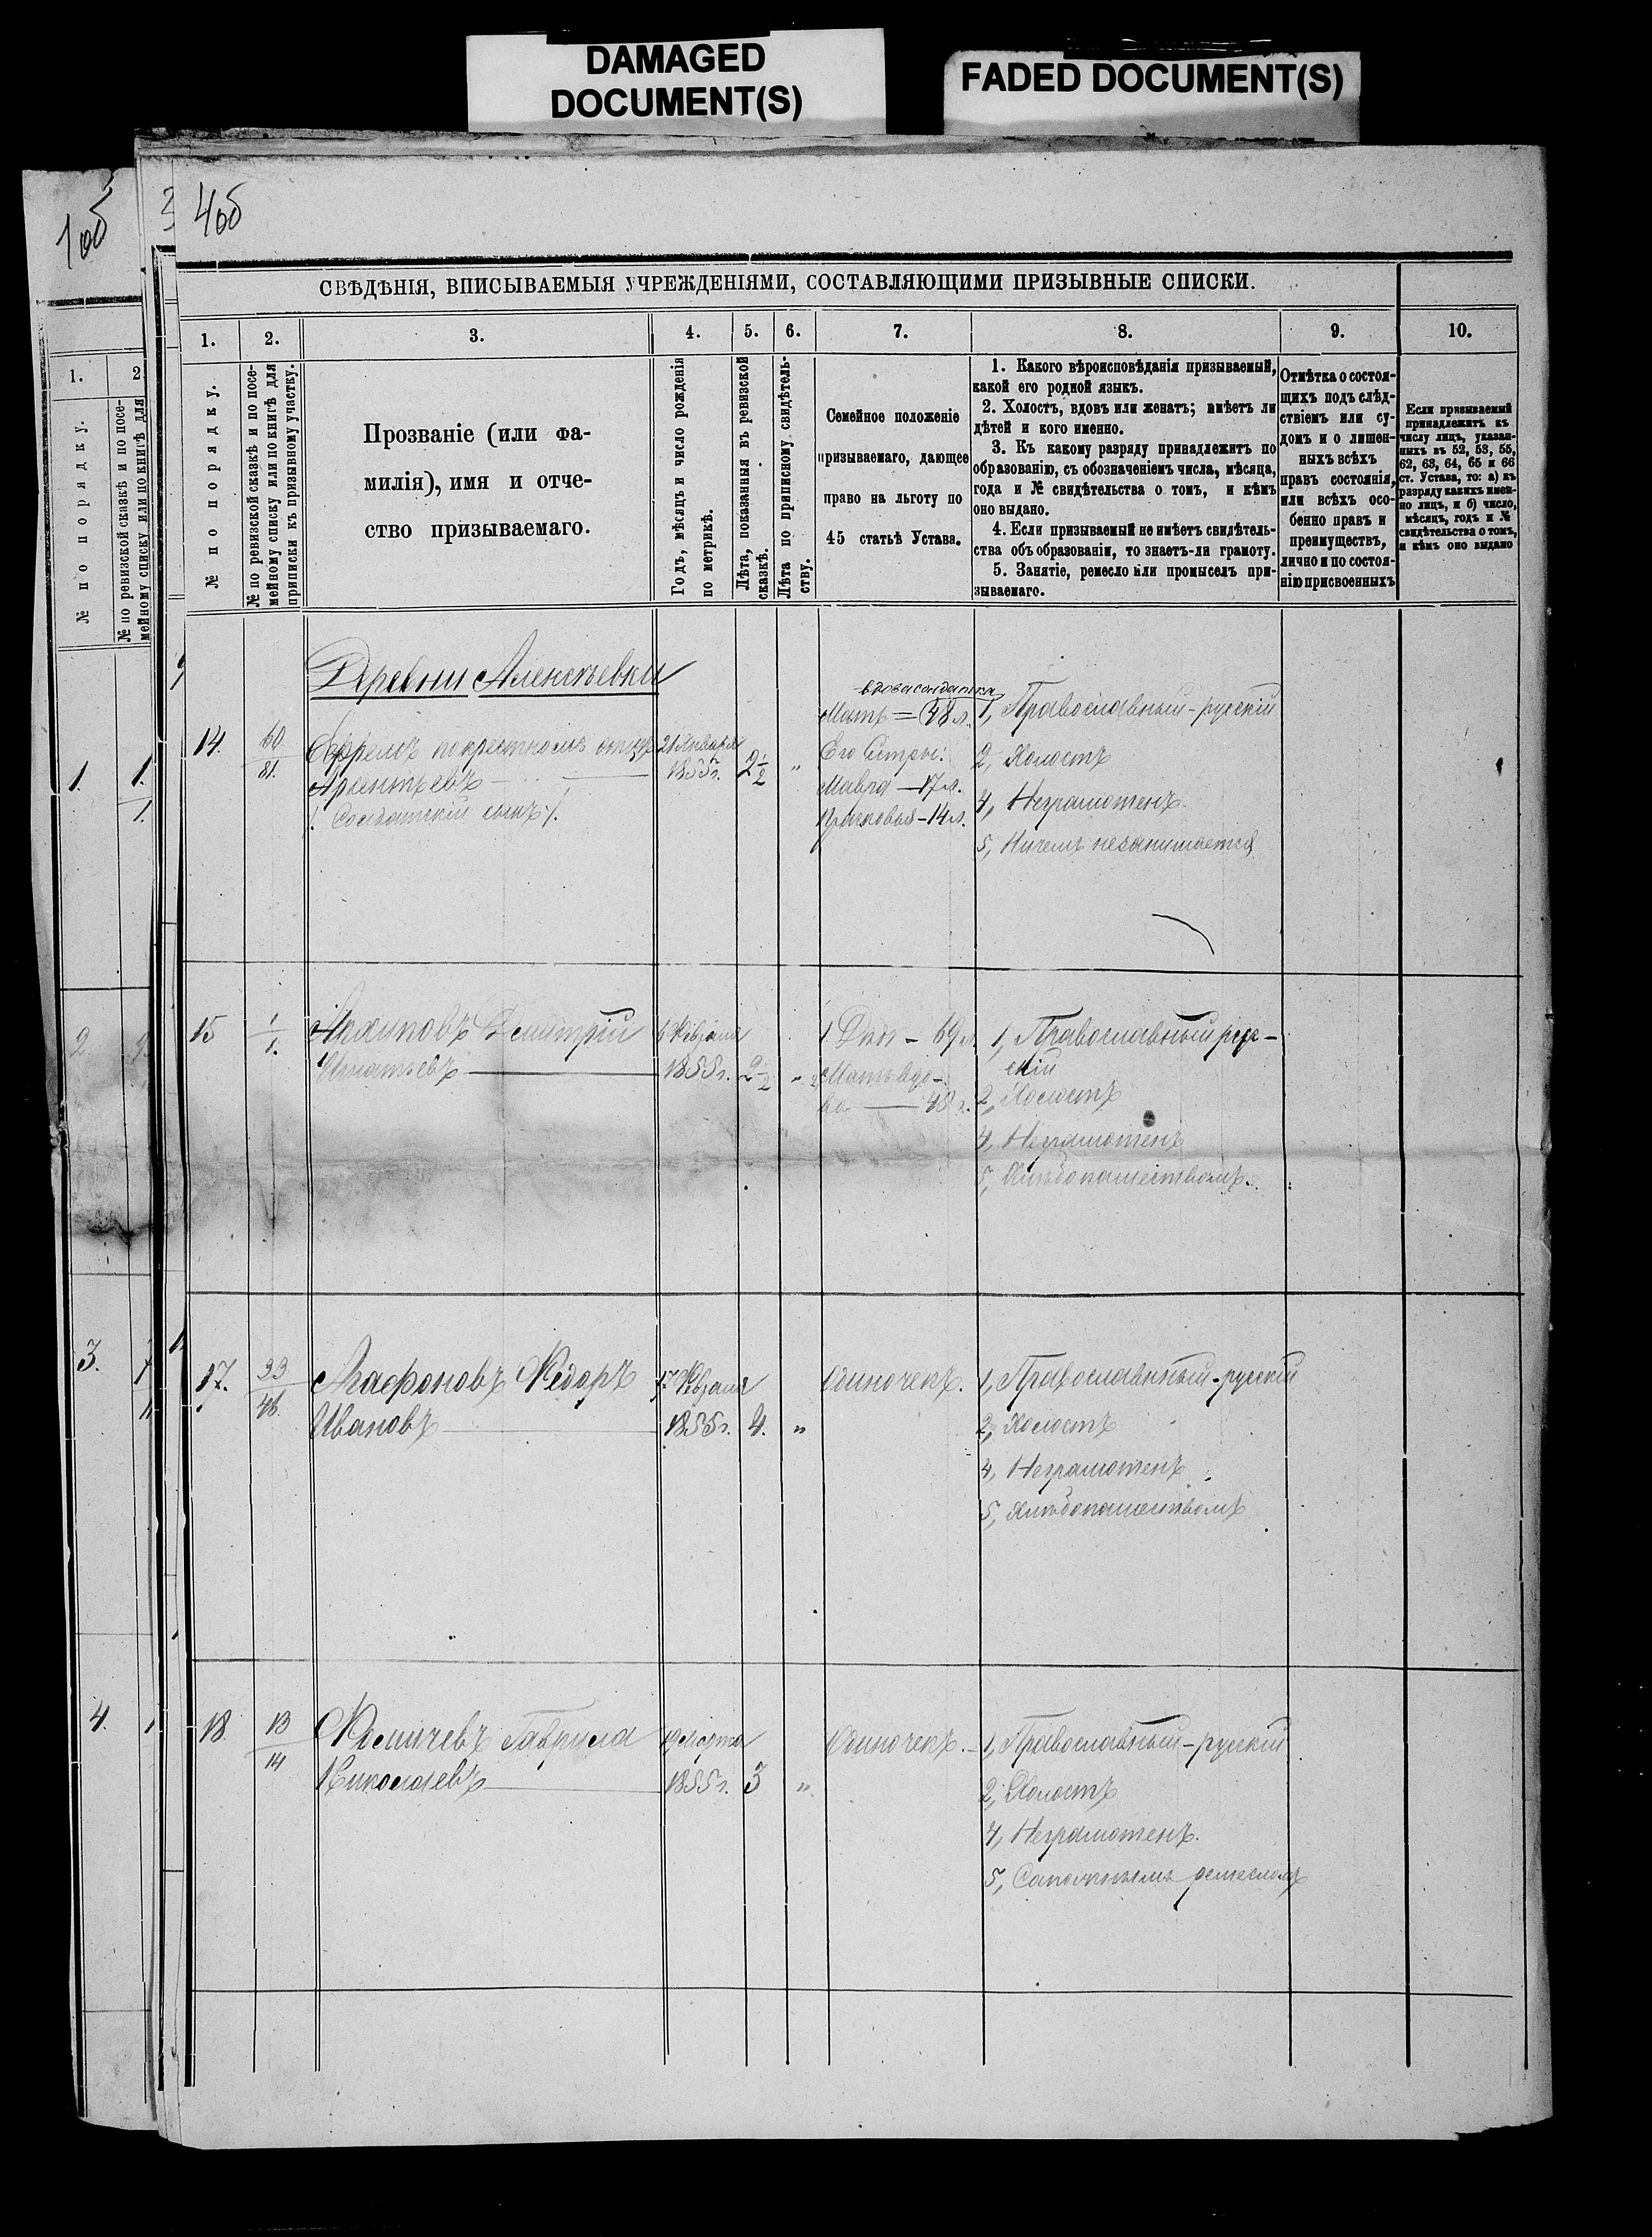 DAMAGED
DOCUMENT(S)
FADED DOCUMENT(S)
1об
4об
СВѢДѢНІЯ, ВПИСЫВАЕМЫЯ УЧРЕЖДЕНІЯМИ, СОСТАВЛЯЮЩИМИ ПРИЗЫВНЫЕ СПИСКИ.
1. 2. 3. 4. 5. 6. 7. 8. 9. 10.
№ по порядку.
№ по ревизской сказкѣ и по посе-
мейному списку или по книгѣ для
приписки къ призывному участку.
Прозваніе (или фа-
милія), имя и отче-
ство призываемаго.
Годъ, мѣсяцъ и число рожденія
по метрикѣ.
Лѣта, показанныя въ ревизской
сказкѣ.
Лѣта по приписному свидѣтель-
ству.
Семейное положеніе
призываемаго, дающее
право на льготу по
45 статьѣ Устава.
1. Какого вѣроисповѣданія призываемый,
какой его родной языкъ.
2. Холостъ, вдовъ или женатъ; имѣетъ ли
дѣтей и кого именно.
3. Къ какому разряду принадлежитъ по
образованію, съ обозначеніемъ числа, мѣсяца,
года и № свидѣтельства о томъ, и кѣмъ
оно выдано.
4. Если призываемый не имѣетъ свидѣтель-
ства объ образованіи, то знаетъ-ли грамоту.
5. Занятіе, ремесло или промыселъ при-
зываемаго.
Отмѣтка о состоя-
щихъ подъ слѣд-
ствіемъ или су-
домъ и о лишен-
ныхъ всѣхъ
правъ состоянія,
или всѣхъ осо-
бенно правъ и
преимуществъ,
лично и по состоя-
нію присвоенныхъ
Если призываемый
принадлежитъ къ
числу лицъ, указан-
ныхъ въ 52, 53, 55,
62, 63, 64, 65 и 66
ст. Устава, то: а) къ
разряду какихъ имен-
но лицъ, и б) число,
мѣсяцъ, годъ и №
свидѣтельства о томъ,
и кѣмъ оно выдано
1. 2
№ по порядку.
№ по ревизской сказкѣ и по посе-
мейному списку или по книгѣ для
1. 1.
1.
2
3.
4.
Деревни Алексѣевки
14.
60
81.
по крестному отцу
Арентьевъ
/. Солдатскій сынъ ./
21 Января
1855 г.
2 1/2
"
вдова солдатка
Мать = 48 л.
Его Сестры:
Мавра — 17 л.
Прасковья — 14 л.
1, Православный - русскій
2, Холостъ
4, Неграмотенъ.
5, Ничемъ незанимается
15
1
1.
Архиповъ Дмитрій
Игнатьевъ
6 Февраля
1855 г.
2
"
1. Дядя — 69 л
2 Мать вдо-
ва — 48 л.
1, Православный рус-
скій
2, Холостъ
4, Неграмотенъ
5, Хлѣбопашествомъ.
17.
33
46.
Агафоновъ Федоръ
Ивановъ
17 Февраля
1855 г.
4.
"
Одиночекъ.
1, Православный - русскій
2, Холостъ
4, Неграмотенъ
5, Хлѣбопашествомъ
18.
13
14
Фомичевъ Гаврила
Николаевъ
19 Марта
1855 г.
3
"
Одиночекъ.
1, Православный - русскій
2, Холостъ
4, Неграмотенъ.
5, Сапожнымъ ремесломъ